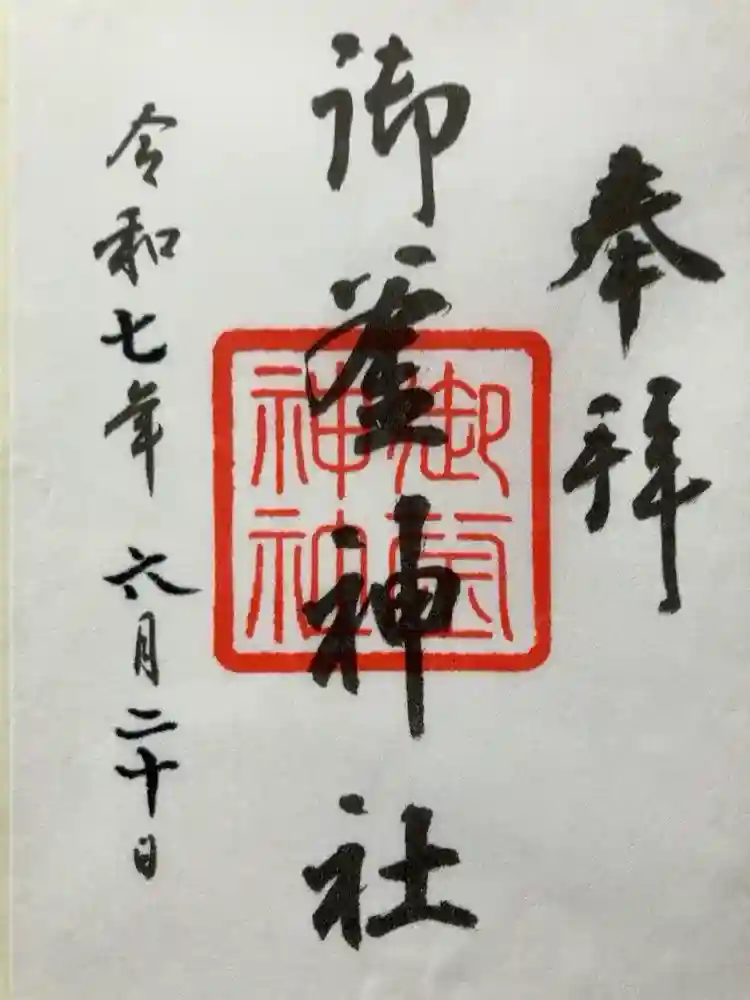 奉拝
御釜神社
御釜神社
令和七年 六月二十日